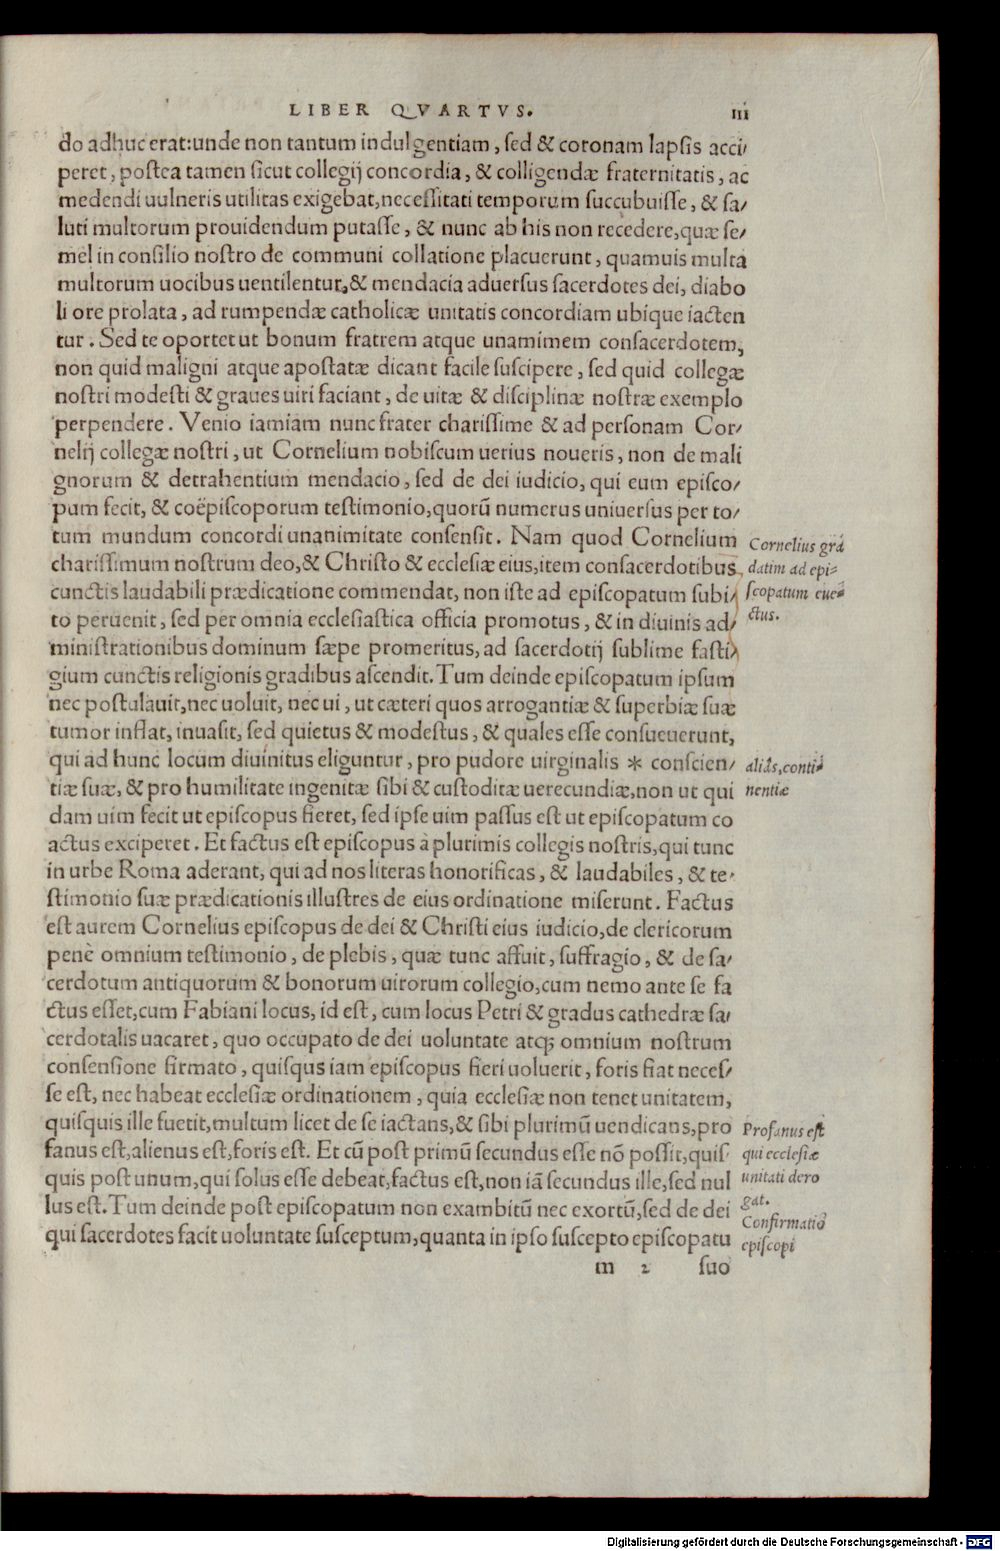 LIBER QVARTVS.
III
do adhuc erat:unde non tantum indulgentiam, sed & coronam lapsis acci/
peret, postea tamen sicut collegij concordia, & colligendæ fraternitatis, ac
medendi uulneris utilitas exigebat,necessitati temporum succubuisse, & sa/
luti multorum prouidendum putasse, & nunc ab his non recedere,quæ se/
mel in consilio nostro de communi collatione placuerunt, quamuis multa
multorum uocibus uentilentur,& mendacia aduersus sacerdotes dei, diabo
li ore prolata, ad rumpendæ catholicæ unitatis concordiam ubique iacten
tur. Sed te oportet ut bonum fratrem atque unamimem consacerdotem,
non quid maligni atque apostatæ dicant facile suscipere, sed quid collegæ
nostri modesti & graues uiri faciant, de uitæ & disciplinæ nostræ exemplo
perpendere. Venio iamiam nunc frater charissime & ad personam Cor/
nelij collegæ nostri, ut Cornelium nobiscum uerius noueris, non de mali
gnorum & detrahentium mendacio, sed de dei iudicio, qui eum episco/
pum fecit, & coëpiscoporum testimonio,quorū numerus uniuersus per to/
tum mundum concordi unanimitate consensit. Nam quod Cornelium
charissimum nostrum deo,& Christo & ecclesiæ eius,item consacerdotibus
cunctis laudabili prædicatione commendat, non iste ad episcopatum subi/
to peruenit, sed per omnia ecclesiastica officia promotus, & in diuinis ad/
ministrationibus dominum sæpe promeritus, ad sacerdotij sublime fasti/
gium cunctis religionis gradibus ascendit. Tum deinde episcopatum ipsum
nec postulauit,nec uoluit, nec ui, ut cæteri quos arrogantiæ & superbiæ suæ
tumor inflat, inuasit, sed quietus & modestus, & quales esse consueuerunt,
qui ad hunc locum diuinitus eliguntur, pro pudore uirginalis * conscien/
tiæ suæ, & pro humilitate ingenitæ sibi & custoditæ uerecundiæ,non ut qui
dam uim fecit ut episcopus fieret, sed ipse uim passus est ut episcopatum co
actus exciperet. Et factus est episcopus à plurimis collegis nostris,qui tunc
in urbe Roma aderant, qui ad nos literas honorificas, & laudabiles, & te/
stimonio suæ prædicationis illustres de eius ordinatione miserunt. Factus
est autem Cornelius episcopus de dei & Christi eius iudicio,de clericorum
penè omnium testimonio, de plebis, quæ tunc affuit, suffragio, & de sa/
cerdotum antiquorum & bonorum uirorum collegio,cum nemo ante se fa
ctus esset,cum Fabiani locus, id est, cum locus Petri & gradus cathedræ sa/
cerdotalis uacaret, quo occupato de dei uoluntate atq; omnium nostrum
consensione firmato, quisqus iam episcopus fieri uoluerit, foris fiat neces/
se est, nec habeat ecclesiæ ordinationem, quia ecclesiæ non tenet unitatem,
quisquis ille fuetit,multum licet de se iactans,& sibi plurimū uendicans,pro
fanus est,alienus est,foris est. Et cū post primū secundus esse nō possit,quis
quis post unum,qui solus esse debeat,factus est,non iā secundus ille,sed nul
lus est. Tum deinde post episcopatum non exambitū nec exortū,sed de dei
qui sacerdotes facit uoluntate susceptum,quanta in ipso suscepto episcopatu
m 2 suo
Cornelius gra
datim ad epi-
scopatum eue-
ctus.
aliâs,conti-
nentiæ
Profanus est
qui ecclesiæ
unitati dero
gat.
Confirmatio
episcopi
Digitalisierung gefördert durch die Deutsche Forschungsgemeinschaft - DFG